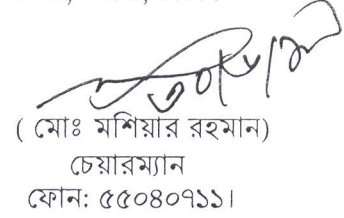 ( মোঃ মশিয়ার রহমান)
চেয়ারম্যান
ফোন: ৫৫০৪০৭১১।